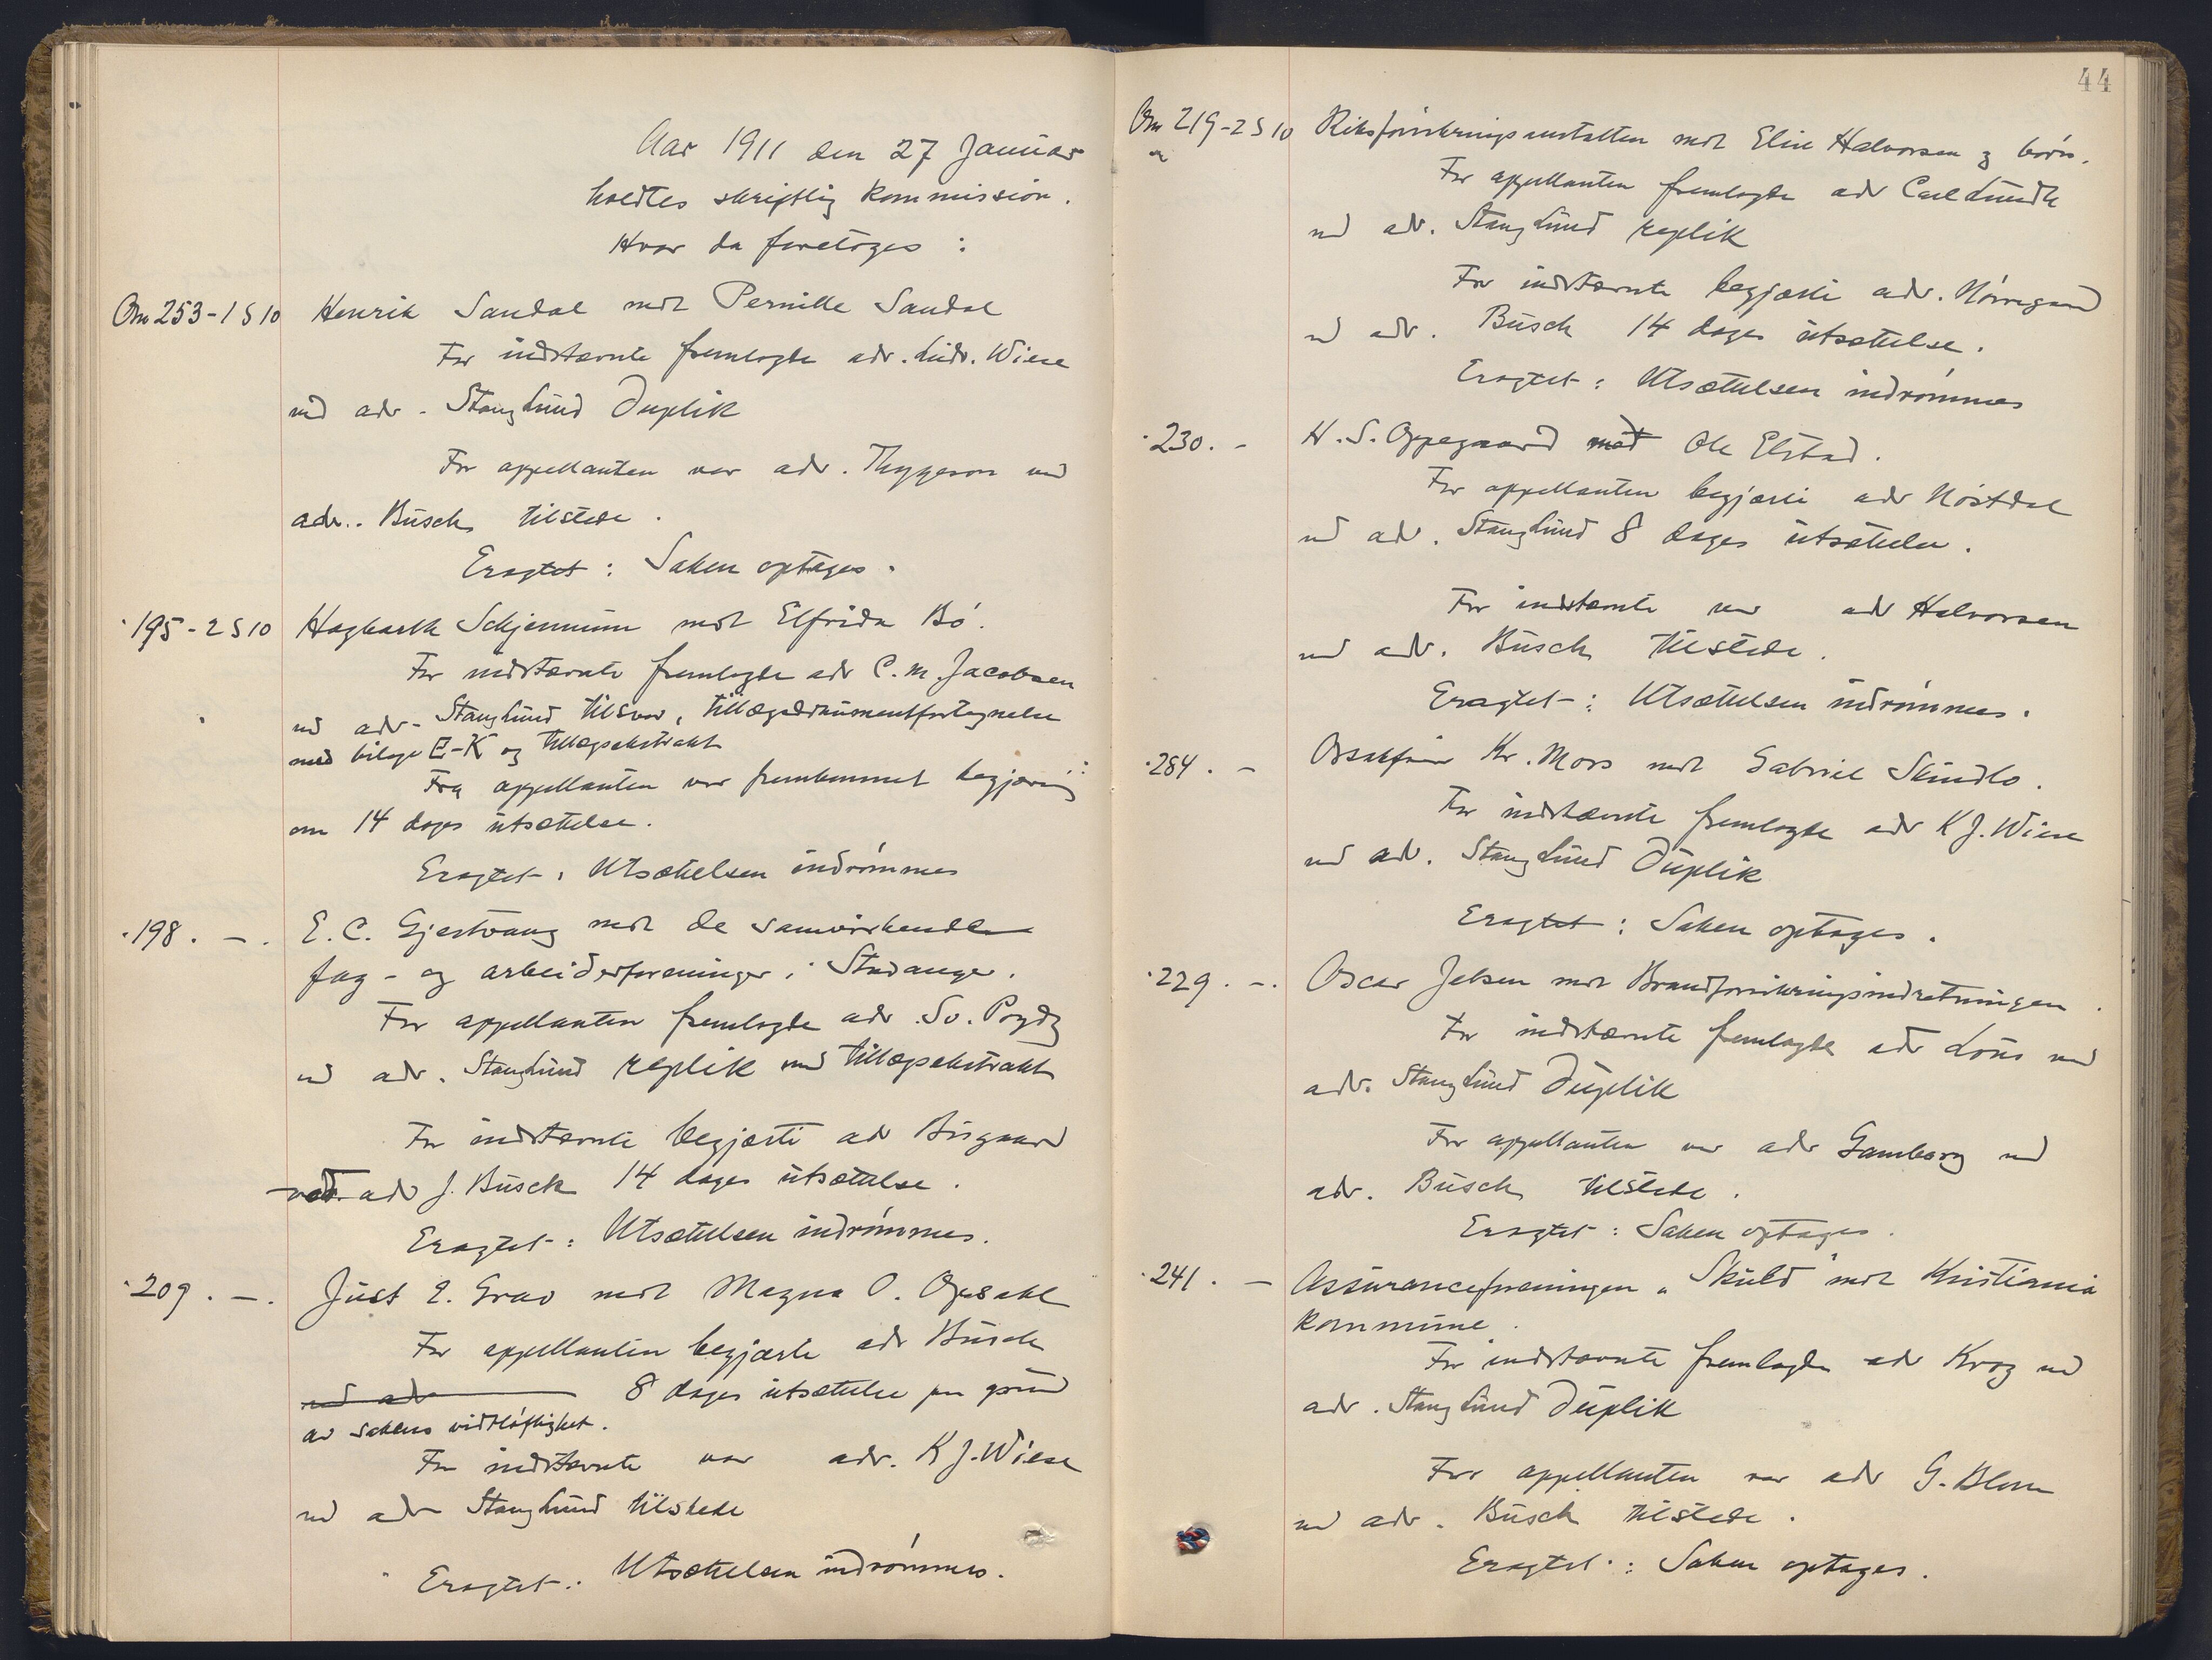 Aar 1911 den 27 Januar
holdtes skriftlig kommission.
Hvor da foretoges:
Om 253-1 S 10 Henrik Sandal mot Pernille Sandal
For indstevnte fremlagde adv. Ludv. Wiese
ved adv. Stang Lund Duplik
For appellanten var adv. Thygeson ved
adv. Busch tilstede.
Eragtet: Saken optages.
195-2 S 10 Hagbarth Schjennum mot Elfrida Bö.
For indstevnte fremlagde adv C. M. Jacobsen
ved adv. Stang Lund tilsvar, tillægsdokumentfortegnelse
med bilage E-K og tillægsekstrakt
Fra appellanten var fremkommet begjæring
om 14 dages utsættelse.
Eragtet: Utsættelsen indrömmes
198. -. E. C. Gjestvang mot de samvirkende
fag- og arbeiderforeninger i Stavanger.
For appellanten fremlagde adv. Sv.
ved adv. Stang Lund replik med tillægsekstrakt
For indstevnte begjærte adv Bisgaard
ved adv J. Busch 14 dages utsættelse.
Eragtet: Utsættelsen indrömmes.
209. -. Just E. Grav mot Magna O. Opsahl
For appellanten begjærte adv Busch
ved adv 8 dages utsættelse paa grund
av sakens vidtlöftighet.
For indstevnte var adv. K J. Wiese
ved adv Stang Lund tilstede
Eragtet: Utsættelsen indrömmes.
44
Om 219-2 S 10 Riksforsikringsanstalten mot Elise Halvorsen og börn.
For appellanten fremlagde adv Carl Lundh
ved adv. Stang Lund replik
For indstevnte begjærte adv. Nörregaard
ved adv. Busch 14 dages utsættelse.
Eragtet: Utsættelsen indrömmes
230. - H. S. Oppegaard mot Ole Elstad.
For appellanten begjærte adv Nöstdal
ved adv. Stang Lund 8 dages utsættelse.
For indstevnte var adv Halvorsen
ved adv. Busch tilstede.
Eragtet: Utsættelsen indrömmes.
284. - Kr. Mors mot Gabriel Skindlo.
For indstævnte fremlagde adv K J. Wiese
ved adv. Stang Lund Duplik
Eragtet: Saken optages.
229. -. Oscar Jebsen mot Brandforsikringsindretningen.
For indstævnte fremlagde adv Lous ved
adv. Stang Lund Duplik
For appellanten var adv Gamborg ved
adv. Busch tilstede.
Eragtet: Saken optages.
241. - Assuranceforeningen „Skuld" mot Kristiania
kommune.
For indstævnte fremlagde adv Krog ved
adv. Stang Lund Duplik
For appellanten var adv G. Blom
ved adv. Busch tilstede.
Eragtet: Saken optages.